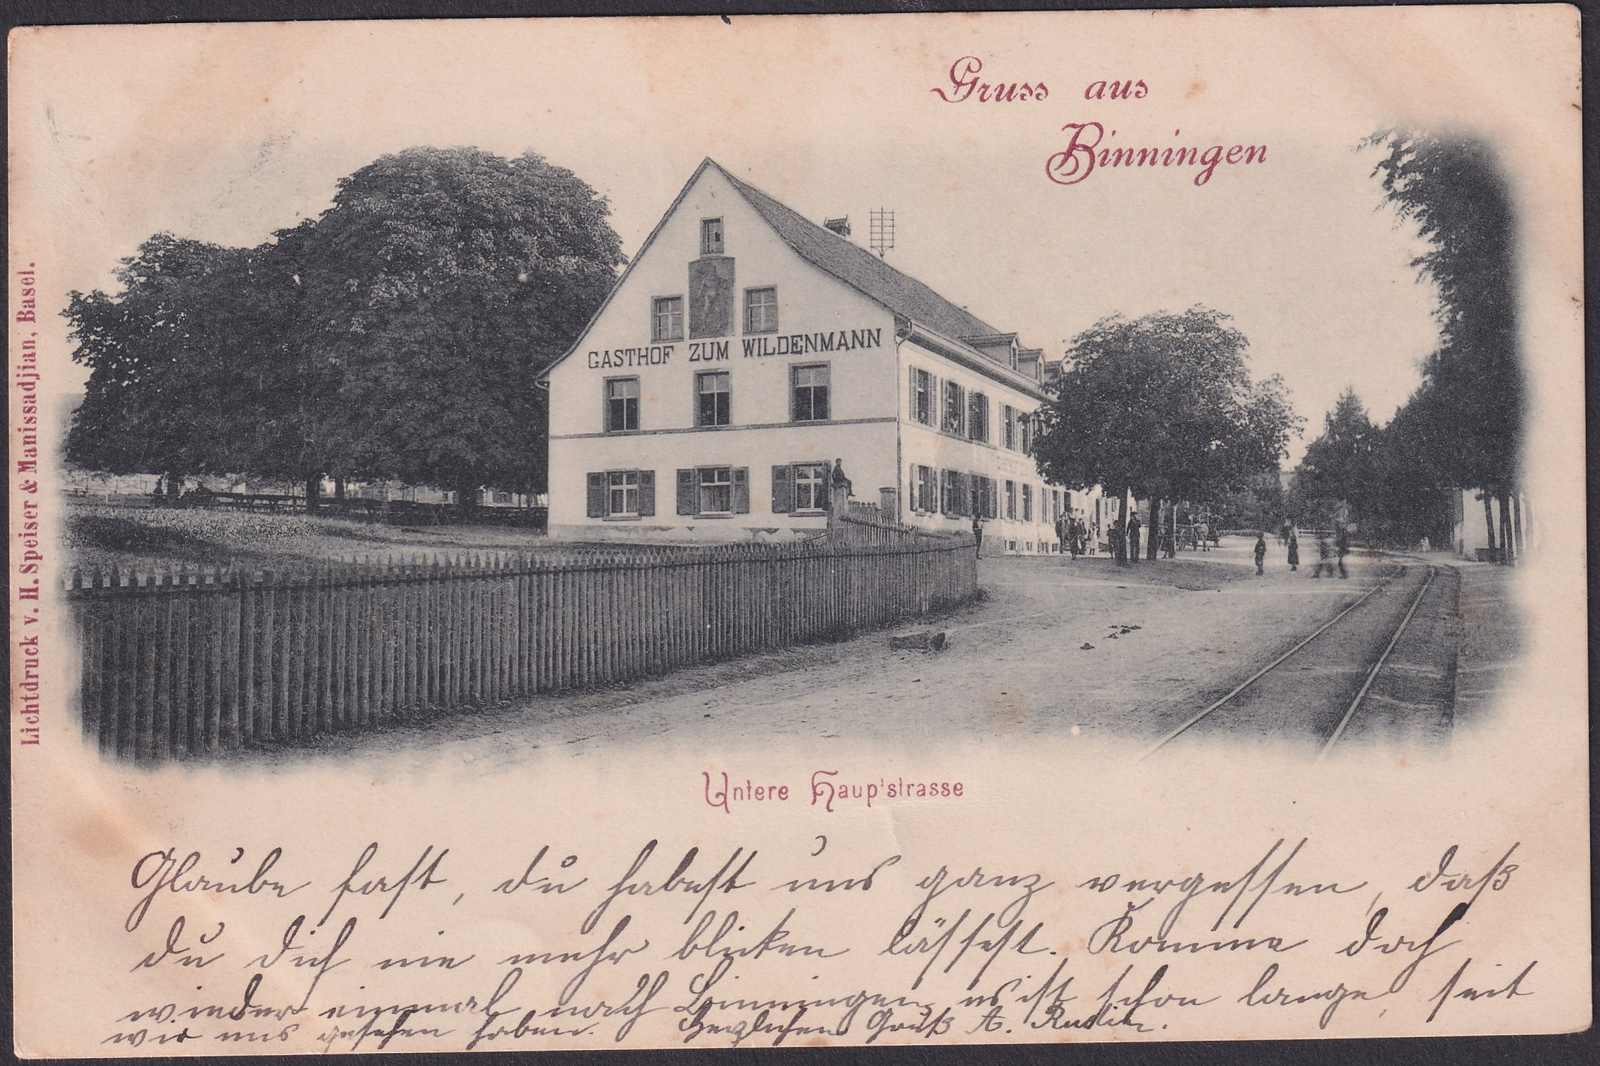 Gruss aus
Binningen
GASTHOF ZUM WILDENMANN
Lichtdruck v. H. Speiser & Manissadjian, Basel.
Untere Hauptstrasse
Glaube fast, du habest uns ganz vergessen, daß
du dich nie mehr blicken lässest. Komme doch
wieder einmal nach Binningen, es ist schon lange, seit
wir uns gesehen haben. Herzlichen Gruß A.